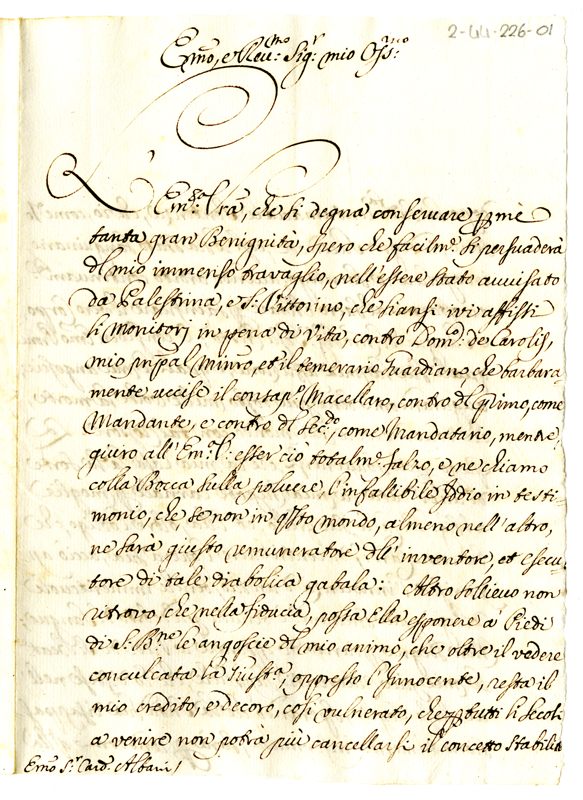 2-44-226-01
Emo, e Reu:mo Sig:r mio Oss:mo
L'Em:za Vra, che si degna conseruare p me
tanta gran Benignità, spero che facilm:e si persuaderà
del mio immenso trauaglio, nell'essere stato auuisato
da Palestrina, e S. Vittorino, che siansi iui affissi
li Monitorj in pena di Vita, contro Dom:o de Carolis,
mio pnpal Minro, et il temerario Guardiano, che barbara-
mente uccise il consap:o Macellaro, contro del primo, come
Mandante, e contro del sec:do, come Mandatario, mentre,
giuro all'Em:za V: esser ciò totalm:e falzo, e ne chiamo
colla Bocca sulla poluere, l'infallibile Iddio in testi-
monio, che se non in qsto mondo, almeno nell'altro,
ne sarà giusto remuneratore dell'inuentore, et esecu-
tore di tale diabolica gabala: Altro sollieuo non
ritrouo, che nella fiducia, possa Ella esponere a' Piedi
di S. B:ne le angoscie del mio animo, che oltre il vedere
conculcata la Giust:a, oppresso l'Innocente, resta il
mio credito, e decoro, così vulnerato, che p tutti li secoli
a venire non potrà più cancellarsi il concetto stabilito
Emo S:r Card. Albani